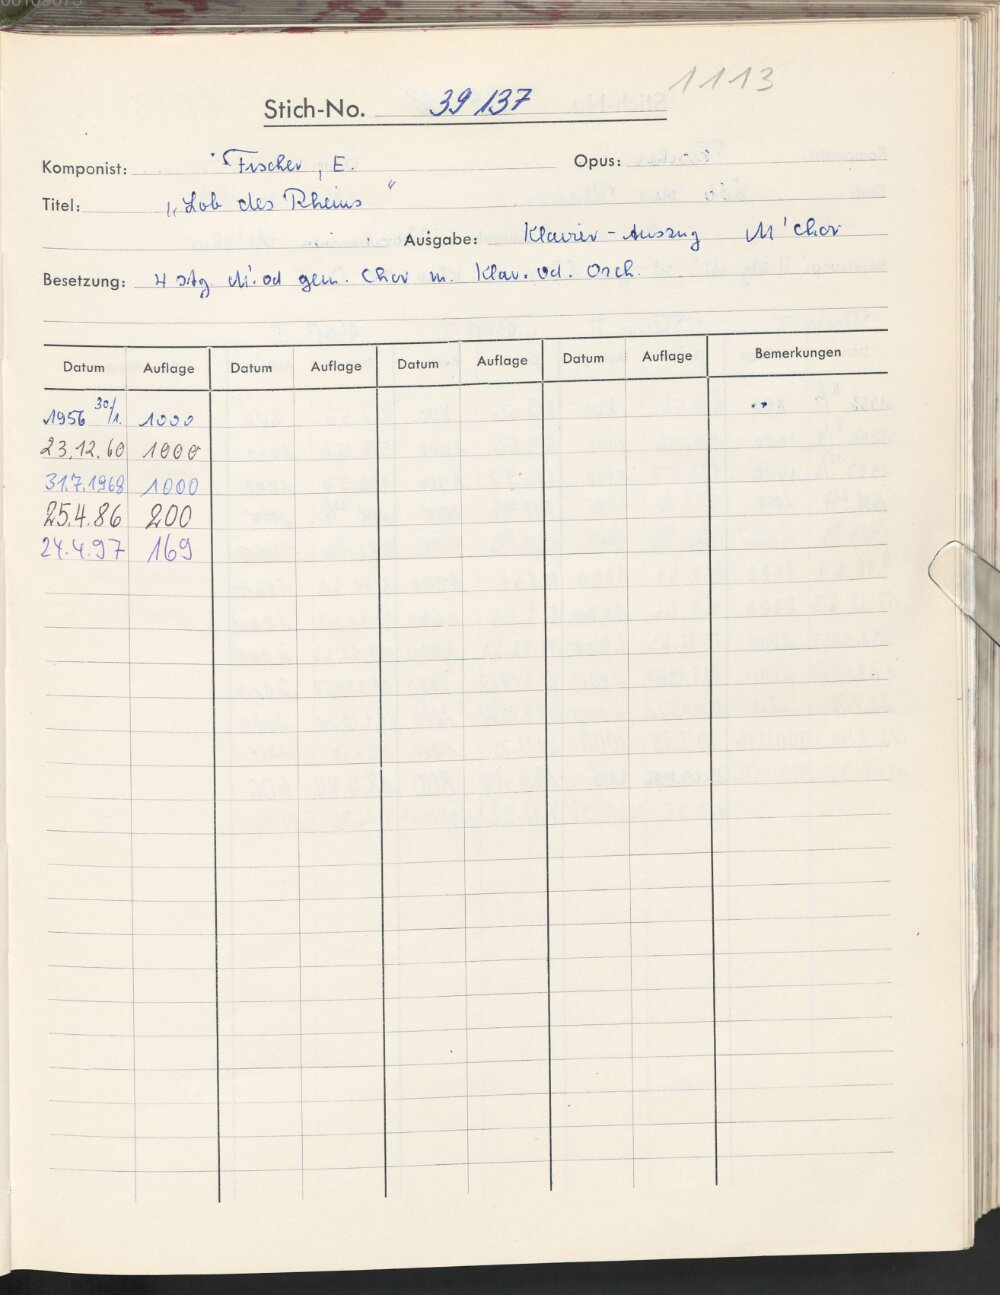 1113
Stich-No. 39137
Komponist: Fischer, E. Opus:
Titel: „Lob des Rheins“
Ausgabe: Klavier-Auszug M'Chor
Besetzung: 4 stg. M. od gem. Chor m. Klav. od. Orch.
Datum Auflage Datum Auflage Datum Auflage Datum Auflage Bemerkungen
1956 30/1. 1000
23.12.60 1000
31.7.1968 1000
25.4.86 200
24.4.97 169